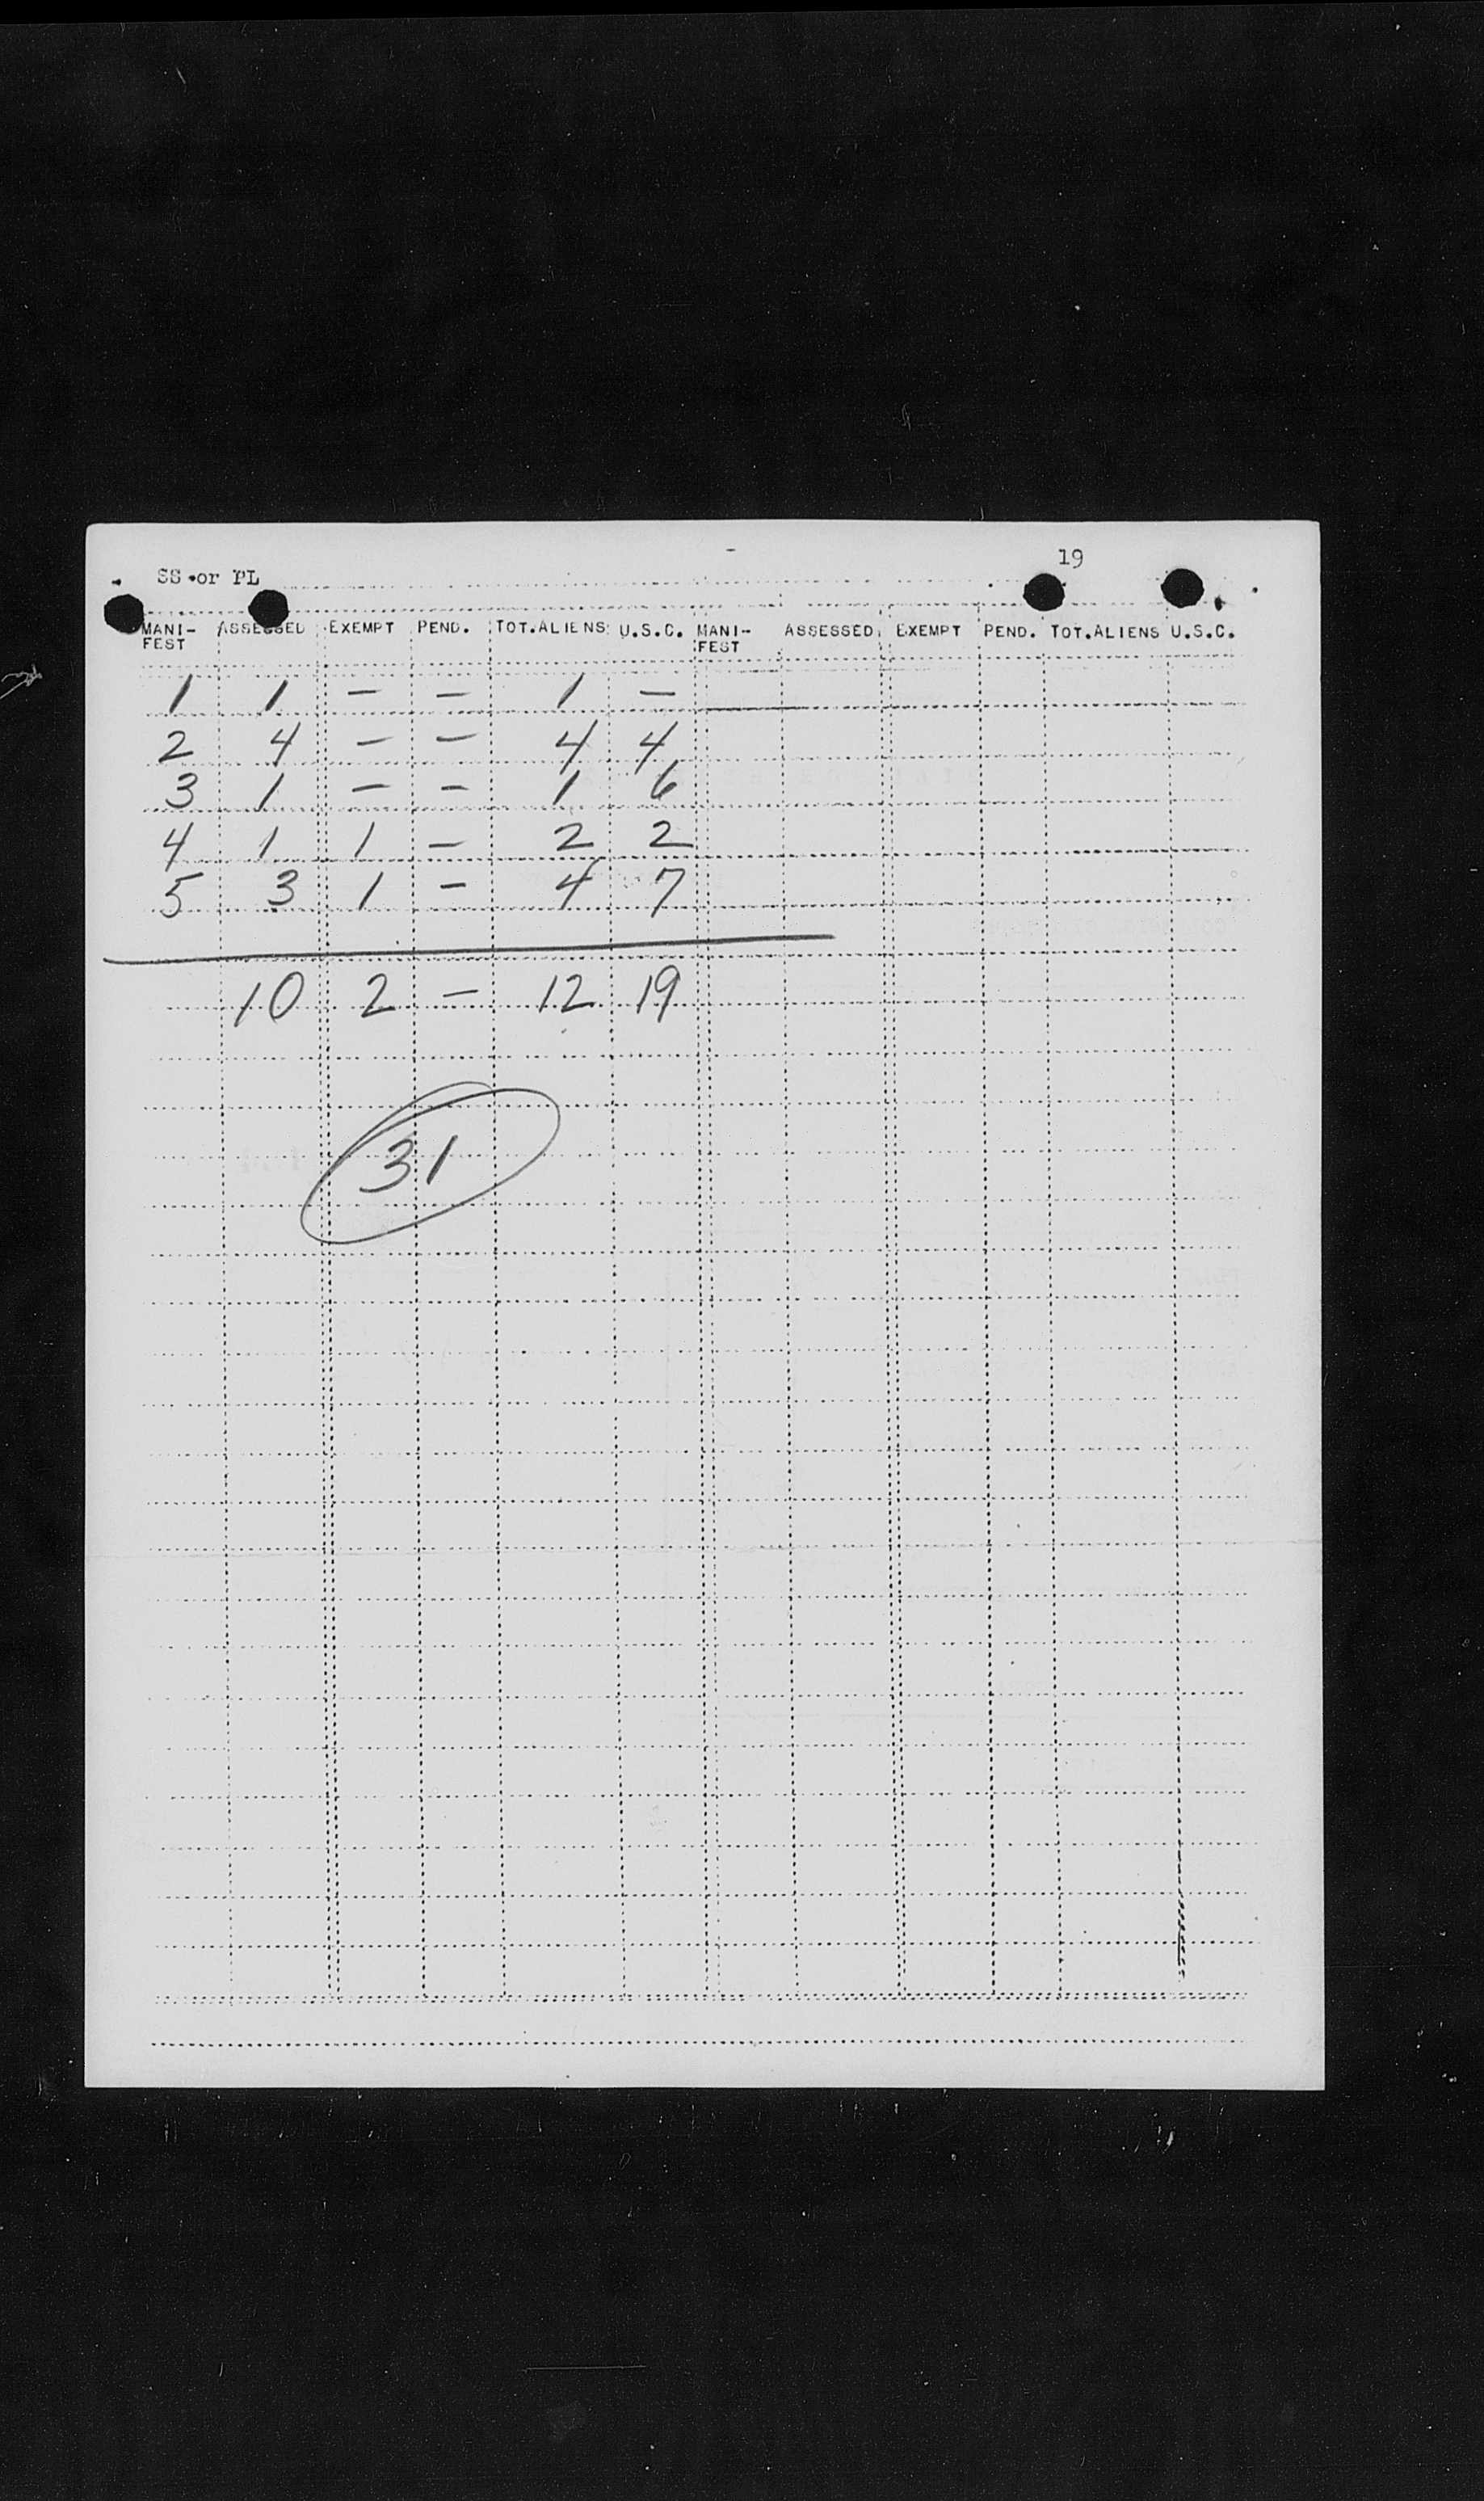 19
SS or PL
MANI- ASSESSED EXEMPT PEND. TOT.ALIENS U.S.C. MANI- ASSESSED EXEMPT PEND. TOT.ALIENS U.S.C.
FEST FEST
1 1 — — 1 —
2 4 — — 4 4
3 1 — — 1 6
4 1 1 — 2 2
5 3 1 — 4 7
10 2 — 12 19
31